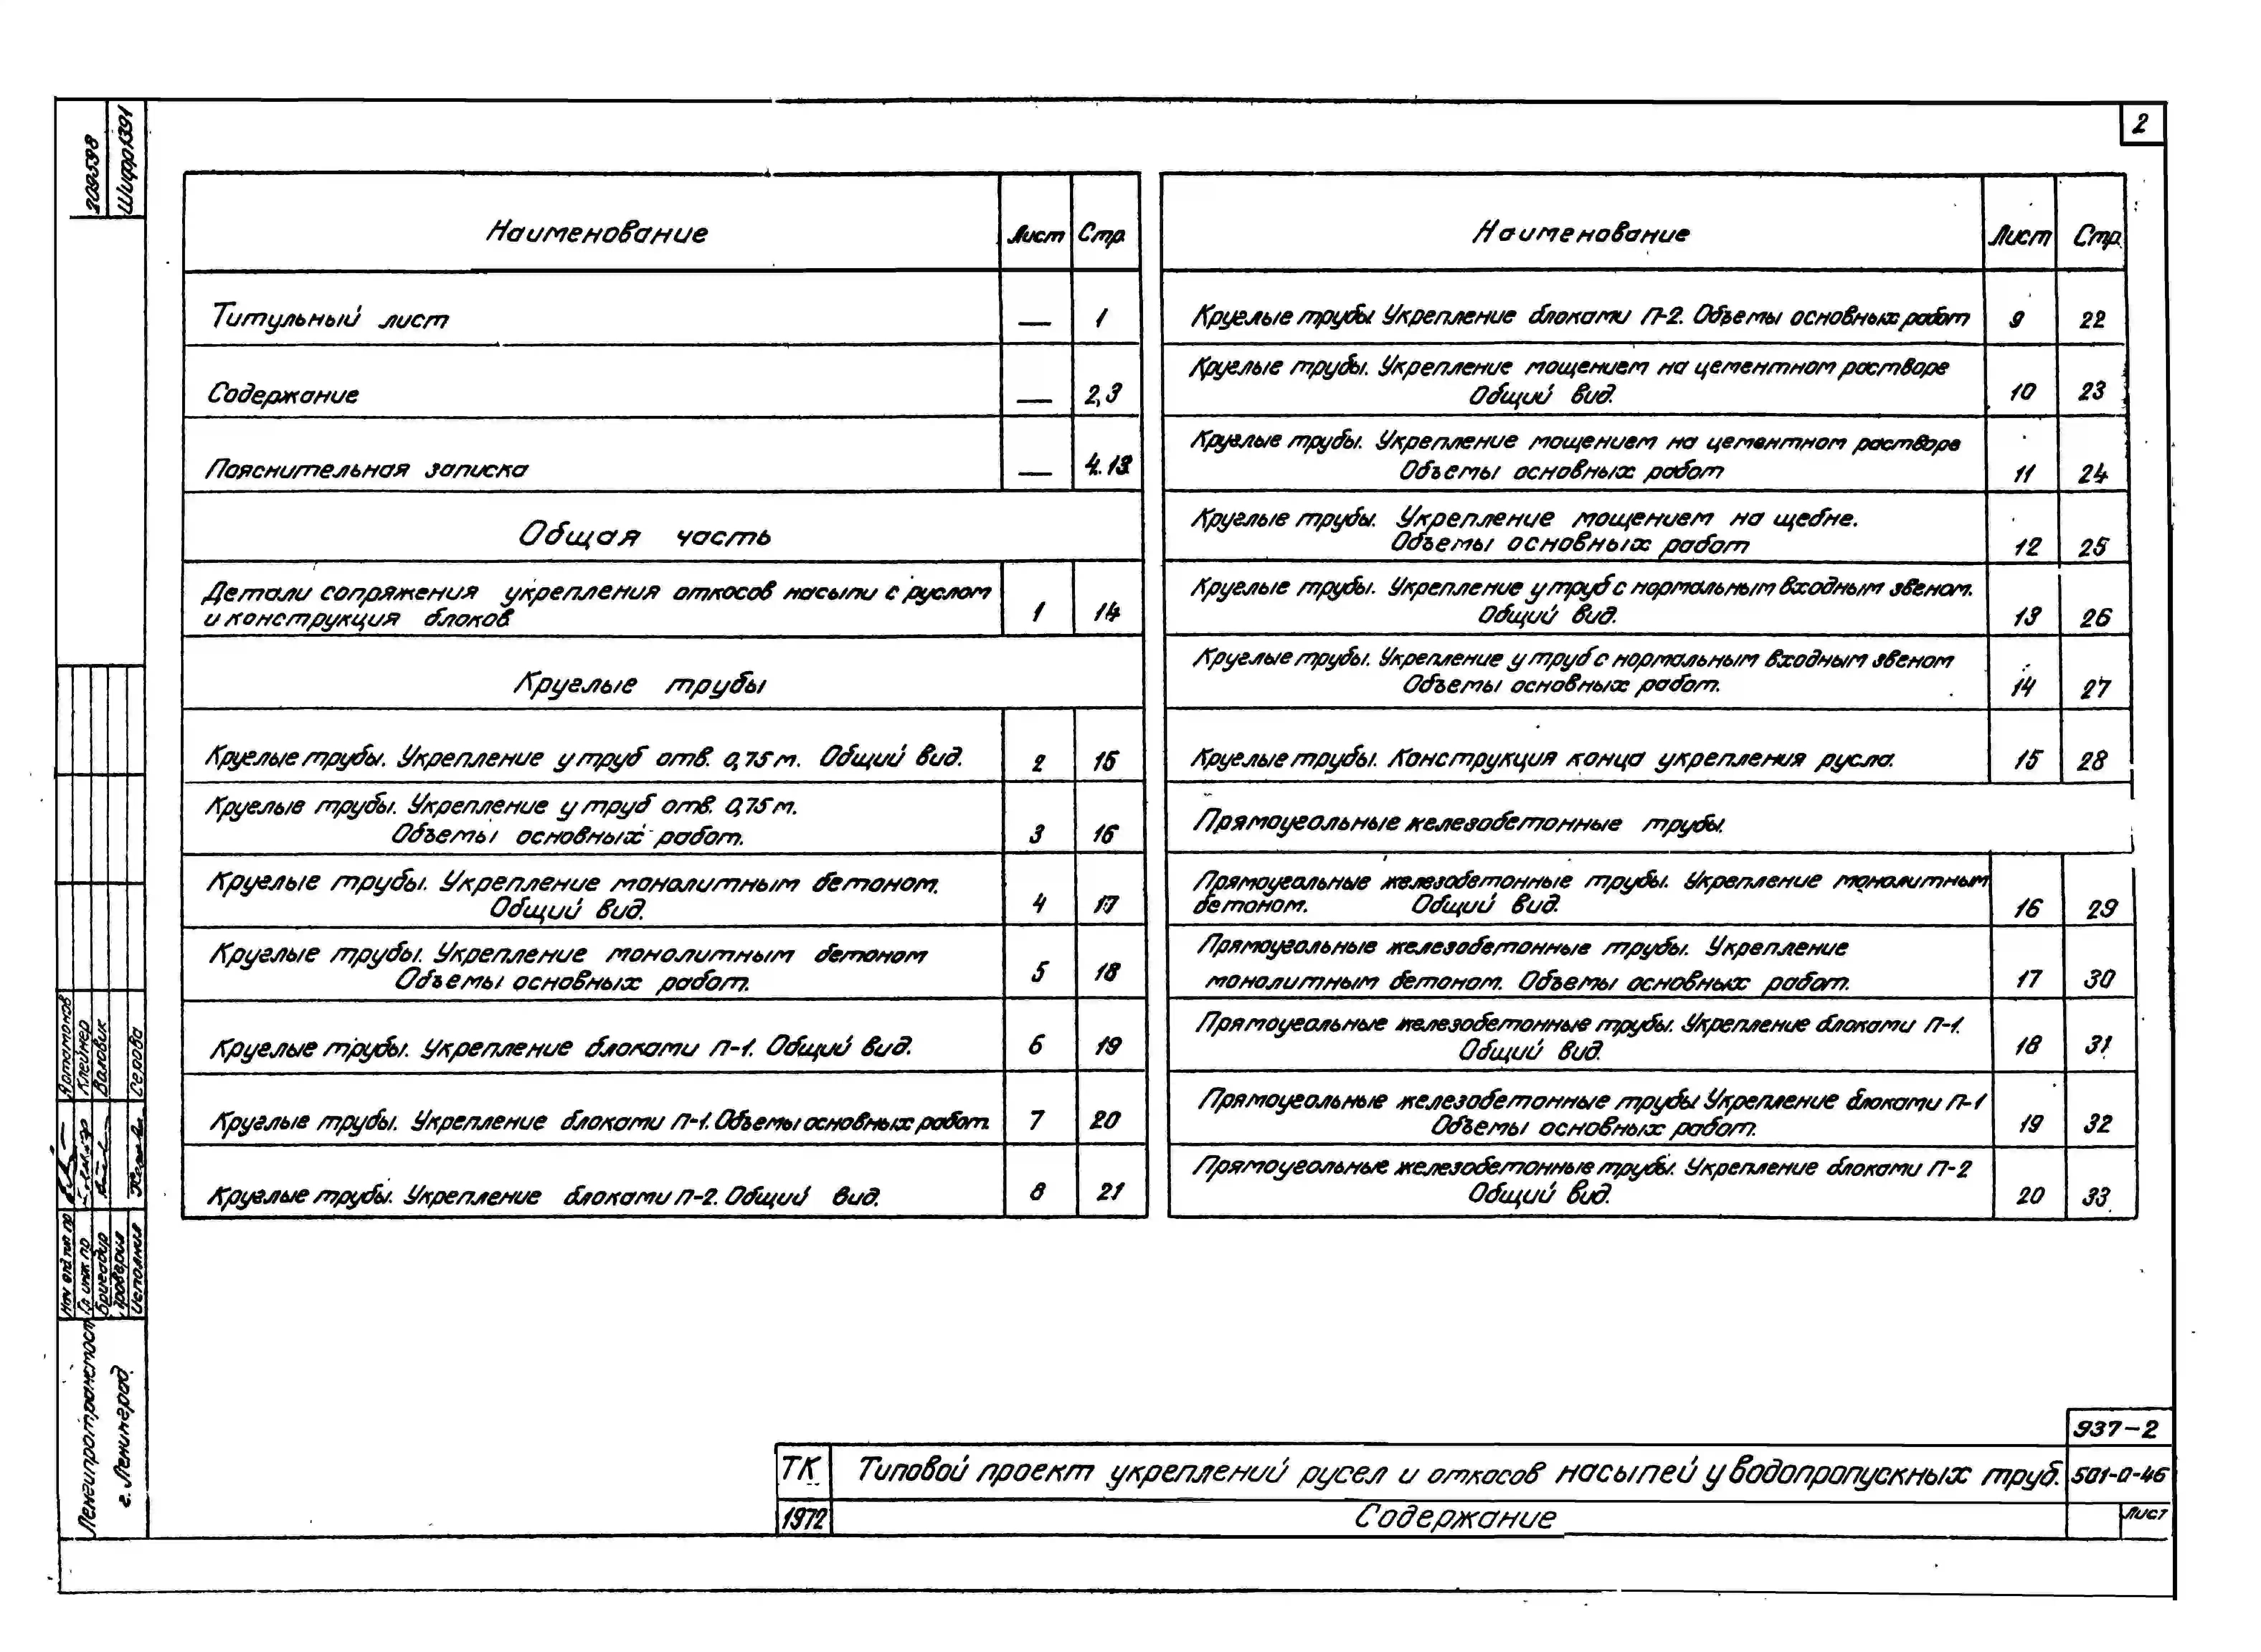 2
209598
Шифр 1391
Наименование Лист Стр.
Титульный лист — 1
Содержание — 2,3
Пояснительная записка — 4-13
Общая часть
Детали сопряжения укрепления откосов насыпи с руслом
и конструкция блоков 1 14
Круглые трубы
Круглые трубы. Укрепление у труб отв. 0,75 м. Общий вид. 2 15
Круглые трубы. Укрепление у труб отв. 0,75 м.
Объемы основных работ. 3 16
Круглые трубы. Укрепление монолитным бетоном.
Общий вид. 4 17
Круглые трубы. Укрепление монолитным бетоном
Объемы основных работ. 5 18
Круглые трубы. Укрепление блоками П-1. Общий вид. 6 19
Круглые трубы. Укрепление блоками П-1. Объемы основных работ. 7 20
Круглые трубы. Укрепление блоками П-2. Общий вид. 8 21
Наименование Лист Стр.
Круглые трубы. Укрепление блоками П-2. Объемы основных работ 9 22
Круглые трубы. Укрепление мощением на цементном растворе
Общий вид. 10 23
Круглые трубы. Укрепление мощением на цементном растворе
Объемы основных работ 11 24
Круглые трубы. Укрепление мощением на щебне.
Объемы основных работ 12 25
Круглые трубы. Укрепление у труб с нормальным входным звеном.
Общий вид. 13 26
Круглые трубы. Укрепление у труб с нормальным входным звеном
Объемы основных работ. 14 27
Круглые трубы. Конструкция конца укрепления русла. 15 28
Прямоугольные железобетонные трубы.
Прямоугольные железобетонные трубы. Укрепление монолитным
бетоном. Общий вид. 16 29
Прямоугольные железобетонные трубы. Укрепление
монолитным бетоном. Объемы основных работ. 17 30
Прямоугольные железобетонные трубы. Укрепление блоками П-1.
Общий вид. 18 31
Прямоугольные железобетонные трубы Укрепление блоками П-1
Объемы основных работ. 19 32
Прямоугольные железобетонные трубы. Укрепление блоками П-2
Общий вид. 20 33
Нач отд тип пр Артамонов
Гл инж пр Клейнер
Бригадир Валовик
Проверил
Исполнил Серова
Ленгипротрансмост
г. Ленинград.
937-2
ТК Типовой проект укреплений русел и откосов насыпей у водопропускных труб. 501-0-46
1972 Содержание Лист